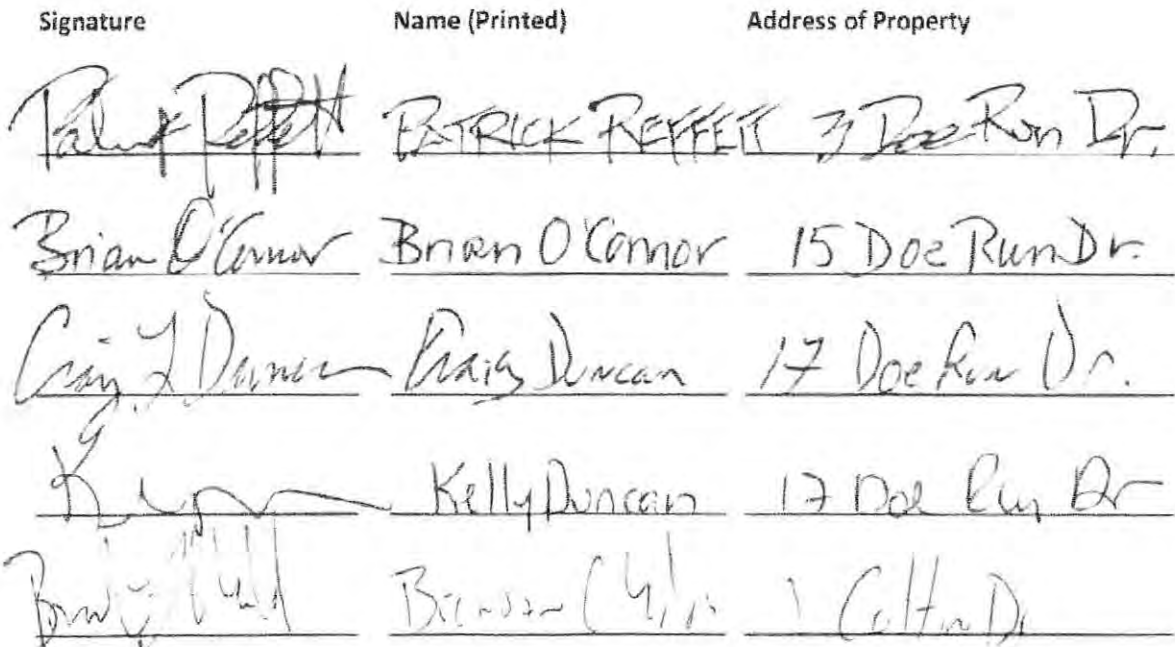 Signature Name (Printed) Address of Property
Patrick Reffett PATRICK REFFETT 3 Doe Run Dr.
Brian O'Connor Brian O'Connor 15 Doe Run Dr.
Craig L Duncan Craig Duncan 17 Doe Run Dr.
Kelly Duncan 17 Doe Run Dr